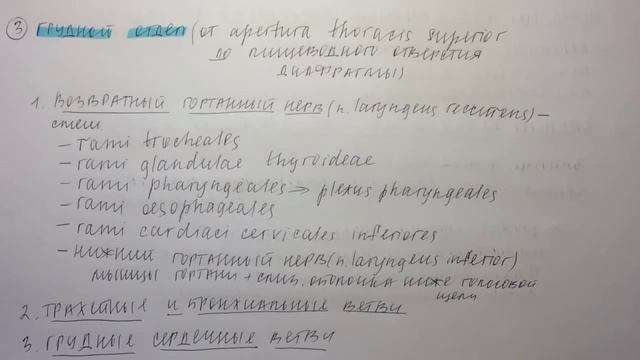 ③ ГРУДНОЙ ОТДЕЛ (от apertura thoracis superior
до пищеводного отверстия
диафрагмы)
1. ВОЗВРАТНЫЙ ГОРТАННЫЙ НЕРВ (n. laryngeus recurrens) –
смеш.
– rami tracheales
– rami glandulae thyroideae
– rami pharyngeales → plexus pharyngeales
– rami oesophageales
– rami cardiaci cervicales inferiores
– нижний гортанный нерв (n. laryngeus inferior)
мышцы гортани + слиз. оболочка ниже голосовой
щели
2. ТРАХЕЙНЫЕ И БРОНХИАЛЬНЫЕ ВЕТВИ
3. ГРУДНЫЕ СЕРДЕЧНЫЕ ВЕТВИ